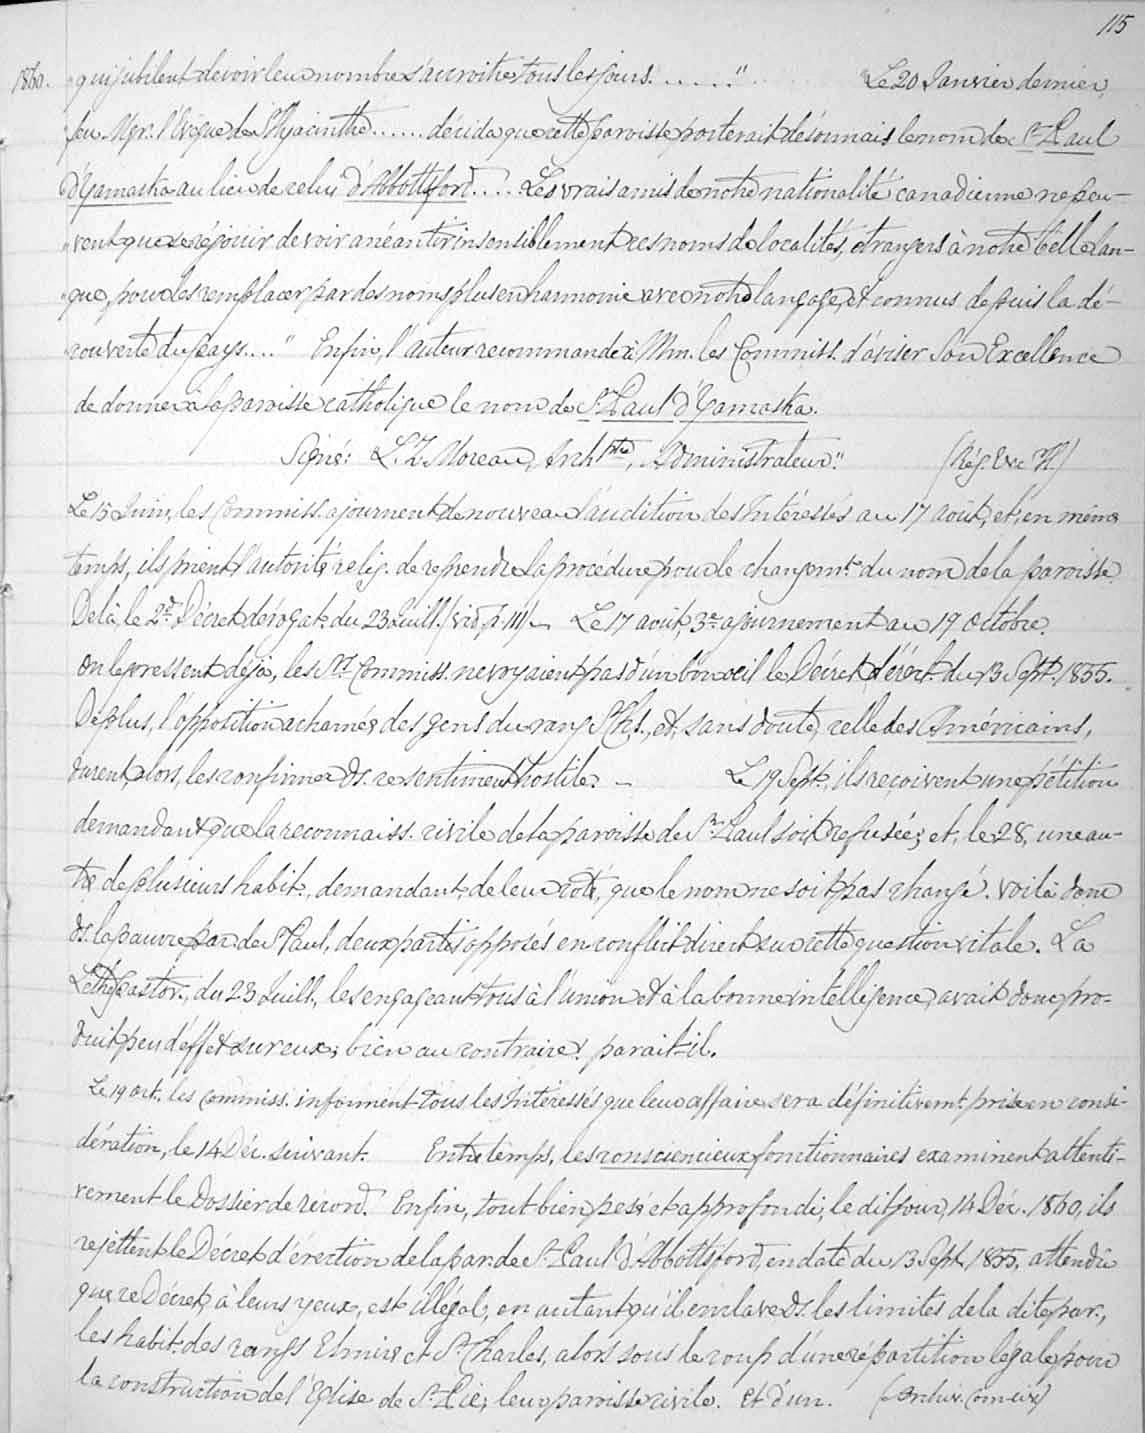 115
1860. "qui jubilent de voir leur nombre s'accroître tous les jours......" "Le 20 Janvier dernier,
feu Mgr. l'Evêque de St Hyacinthe...... décida que cette paroisse porterait désormais le nom de St Paul
d'Yamaska au lieu de celui d'Abbottsford.... Les vrais amis de notre nationalité canadienne ne peu-
"vent que se réjouir de voir anéantir insensiblement ces noms de localités, étrangers à notre belle lan-
"gue, pour les remplacer par des noms plus en harmonie avec notre langage, et connus depuis la dé-
"couverte du pays...." Enfin, l'auteur recommande à Mm. les Commiss. d'aviser Son Excellence
de donner à la paroisse catholique le nom de St Paul d'Yamaska.
Signé: L. Z. Moreau, Arch ptre, Administrateur." (Rég. Eve. H.)
Le 15 Juin, les Commiss. ajournent de nouveau l'audition des Intéressés au 17 août, et, en même
temps, ils prient l'autorité relig. de reprendre la procédure pour le changemt. du nom de la paroisse.
De là, le 2d. Décret dérogat. du 23 Juill. (vid. p. 111) — Le 17 août, 3e ajournement au 19 octobre.
On le pressent déjà, les Mrs Commiss. ne voyaient pas d'un bon oeil le Décret d'érect. du 13 Sept. 1855.
De plus, l'opposition acharnée des gens du rang St Chs., et, sans doute, celle des Américains,
durent, alors, les confirmer ds. ce sentiment hostile. — Le 19 Sept., ils reçoivent une pétition
demandant que la reconnaiss. civile de la paroisse de St Paul soit refusée; et, le 28, une au-
tre de plusieurs habit., demandant, de leur côté, que le nom ne soit pas changé. Voilà donc
ds. la pauvre par. de St Paul, deux partis opposés en conflict direct sur cette question vitale. La
Lettre Pastor., du 23 Juill., les engageant tous à l'union et à la bonne intelligence, avait donc pro-
duit peu d'effet sur eux; bien au contraire! parait-il.
Le 19 oct. les Commiss. informent tous les Intéressés que leur affaire sera définitivemt. prise en consi-
dération, le 14 Déc. suivant. Entre temps, les consciencieux fonctionnaires examinent attenti-
vement le Dossier de record. Enfin, tout bien pesé et approfondi, le dit jour, 14 Déc. 1860, ils
rejettent le Décret d'érection de la par. de St Paul d'Abbottsford, en date du 13 Sept. 1855, attendu
que ce Décret, à leurs yeux, est illégal, en autant qu'il enclave ds. les limites de la dite par.,
les habit. des rangs Elmire et St Charles, alors sous le coup d'une répartition légale pour
la construction de l'Eglise de St Pie, leur paroisse civile. Et d'un. (Archiv. Com-civ.)